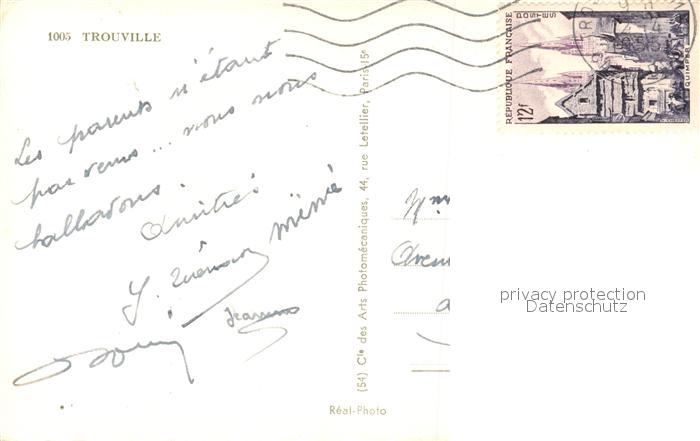 1005 TROUVILLE
Les parents n'étant
pas venus... nous nous
balladons.
Amitiés
Mémé
Y.
Jeannine
(54) Cie des Arts Photomécaniques, 44, rue Letellier, Paris-15e
Réal-Photo
REPUBLIQUE FRANÇAISE
POSTES
12f
QUIMPER
Mme
Aven
a
privacy protection
Datenschutz